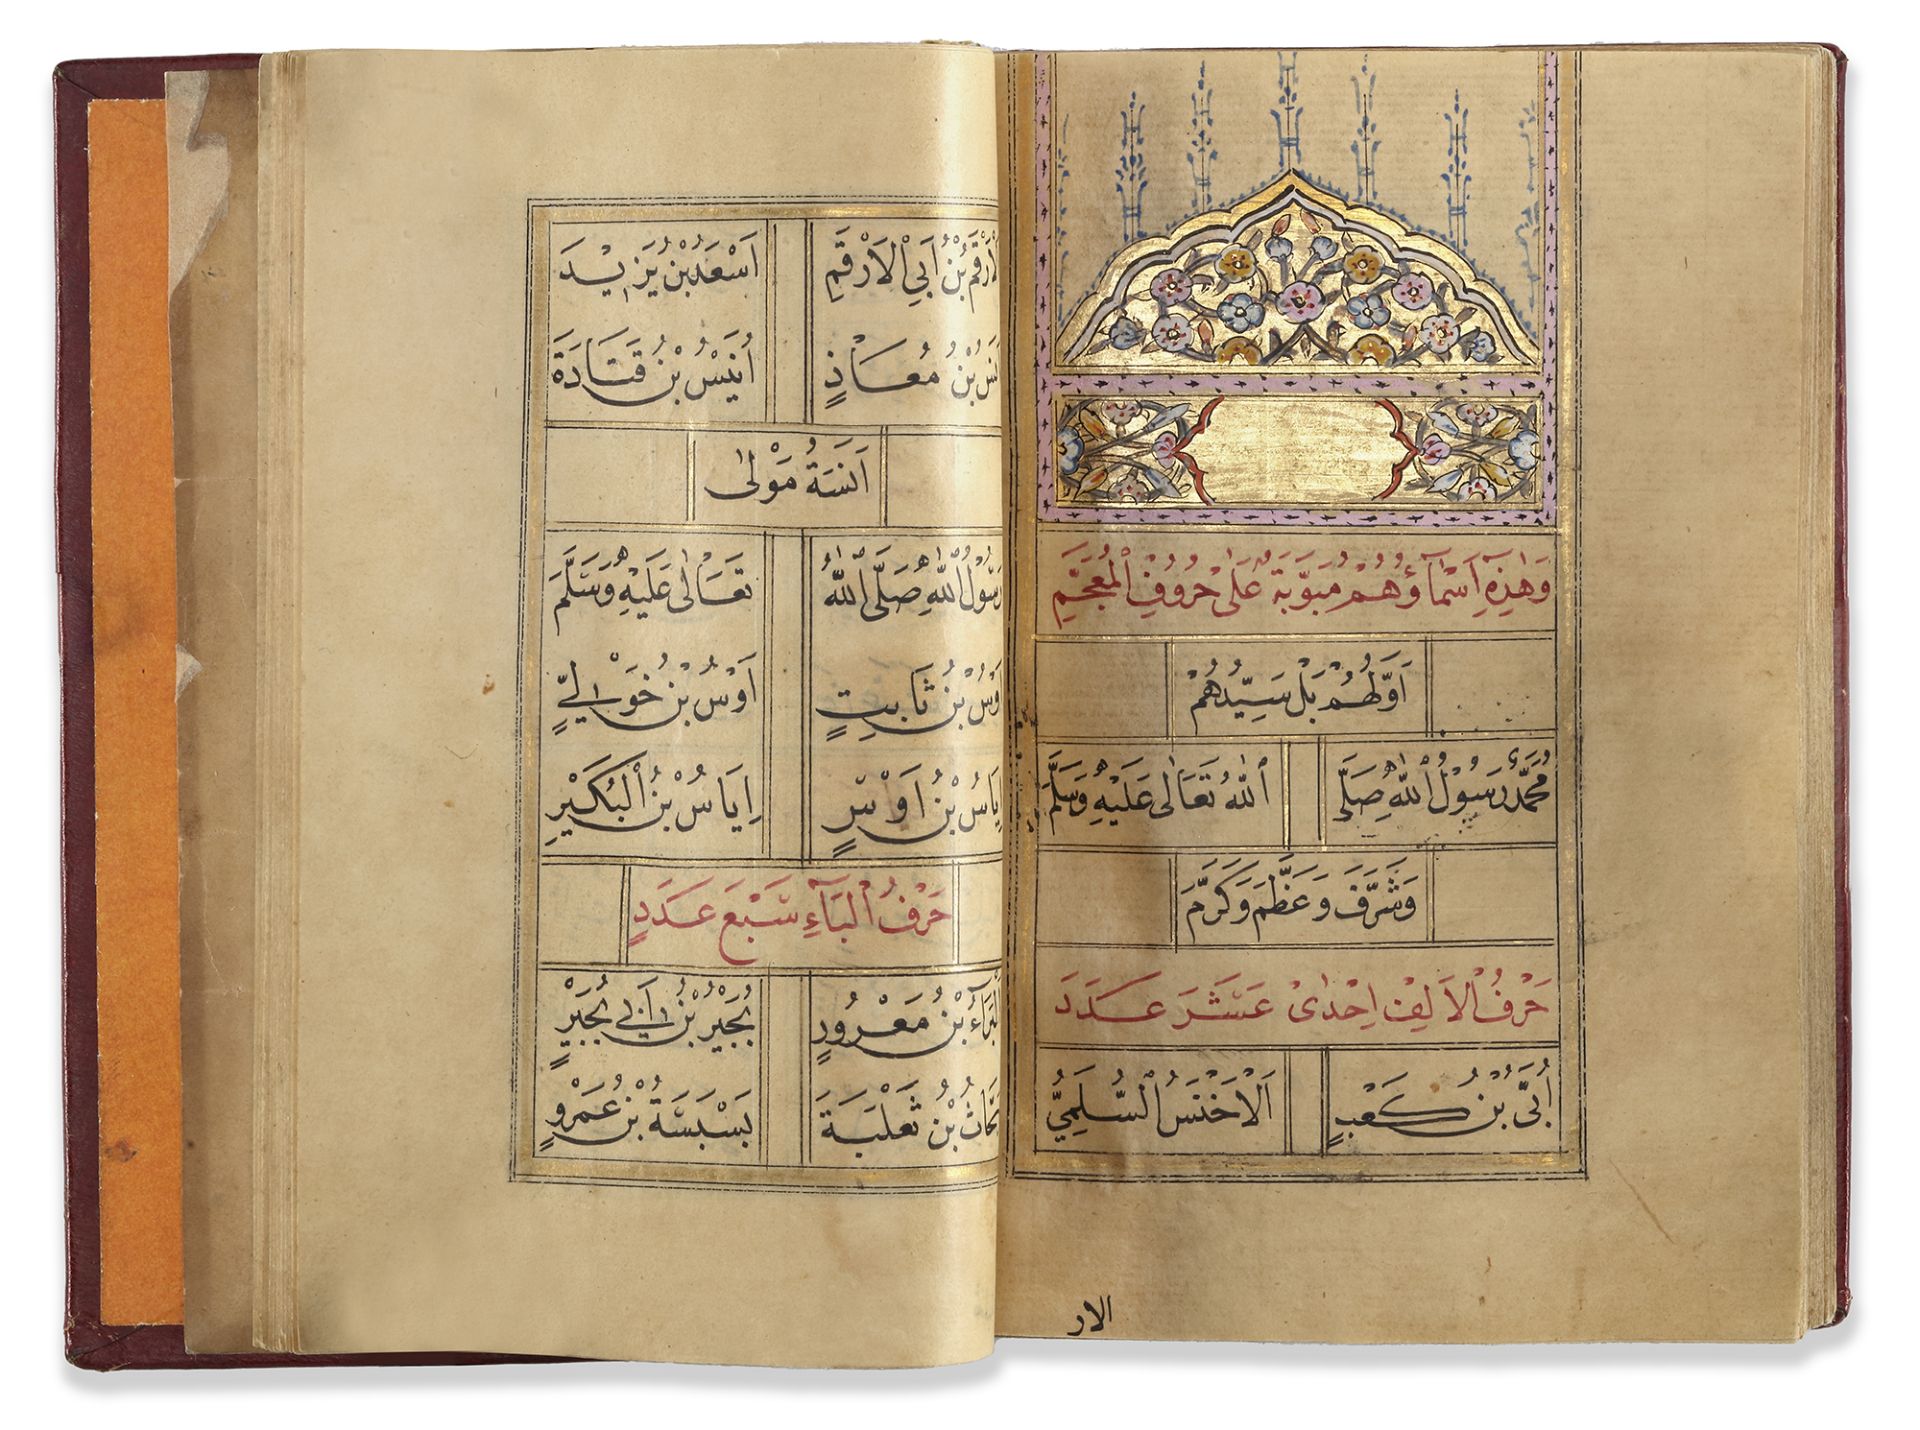 وَهٰذِهِ اَسْمَآؤُهُمْ مُبَوَّبَةٌ عَلٰى حُرُوفِ الْمُعْجَمِ
اَوَّلُهُمْ بَلْ سَيِّدُهُمْ
مُحَمَّدٌ رَسُولُ اللّٰهِ صَلَّى اللّٰهُ تَعَالٰى عَلَيْهِ وَسَلَّمَ
وَشَرَّفَ وَعَظَّمَ وَكَرَّمَ
حَرْفُ الْاَلِفِ اِحْدٰى عَشَرَ عَدَدَ
اُبَىُّ بْنُ كَعْبٍ اَلْاَخْنَسُ السُّلَمِيُّ
الار
الْاَرْقَمُ بْنُ اَبِي الْاَرْقَمِ اَسْعَدُ بْنُ يَزِيدَ
اَنَسُ بْنُ مُعَاذٍ اُنَيْسُ بْنُ قَتَادَةَ
اَنَسَةُ مَوْلٰى
رَسُولُ اللّٰهِ صَلَّى اللّٰهُ تَعَالٰى عَلَيْهِ وَسَلَّمَ
اَوْسُ بْنُ ثَابِتٍ اَوْسُ بْنُ خَوْلِيٍّ
اِيَاسُ بْنُ اَوْسٍ اِيَاسُ بْنُ الْبُكَيْرِ
حَرْفُ الْبَآءِ سَبْعَ عَدَدٍ
اَلْبَرَآءُ بْنُ مَعْرُورٍ بُجَيْرُ بْنُ اَبِي بُجَيْرٍ
بَحَّاثُ بْنُ ثَعْلَبَةَ بَسْبَسَةُ بْنُ عَمْرٍو